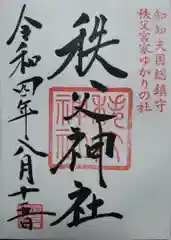 知知夫国総鎮守
秩父宮家ゆかりの社
秩父神社
令和四年八月十一日